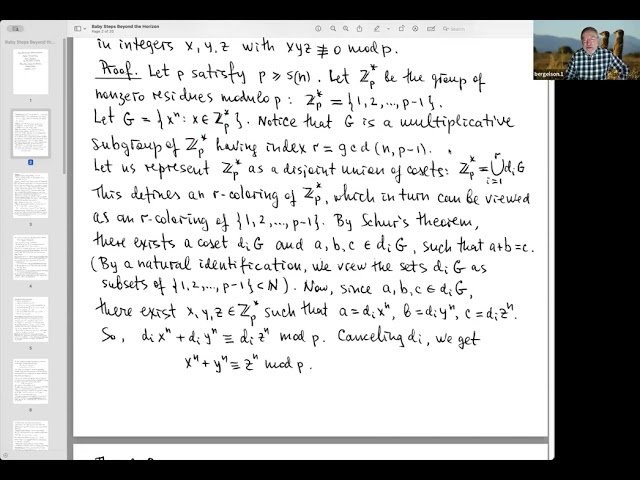 Baby Steps Beyond the Horizon
Page 2 of 30
Baby Steps Beyond the Ho...
bergelson.1
1
2
3
4
5
6
in integers x, y, z with xyz ≢ 0 mod p.
Proof. Let p satisfy p ⩾ S(n). Let ℤp* be the group of
nonzero residues modulo p: ℤp* = {1, 2, ..., p-1}.
Let G = {xⁿ : x ∈ ℤp*}. Notice that G is a multiplicative
subgroup of ℤp* having index r = gcd (n, p-1).
Let us represent ℤp* as a disjoint union of cosets: ℤp* = ⋃ᵢ₌₁ʳ dᵢG
This defines an r-coloring of ℤp*, which in turn can be viewed
as an r-coloring of {1, 2, ..., p-1}. By Schur's theorem,
there exists a coset dᵢG and a, b, c ∈ dᵢG, such that a+b=c.
(By a natural identification, we view the sets dᵢG as
subsets of {1, 2, ..., p-1} ⊂ ℕ). Now, since a, b, c ∈ dᵢG,
there exist x, y, z ∈ ℤp* such that a = dᵢxⁿ, b = dᵢyⁿ, c = dᵢzⁿ.
So, dᵢxⁿ + dᵢyⁿ ≡ dᵢzⁿ mod p. Canceling dᵢ, we get
xⁿ + yⁿ ≡ zⁿ mod p.